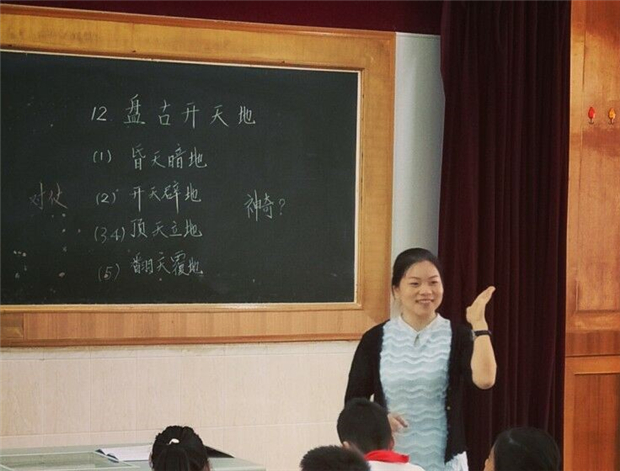 12 盘古开天地
(1) 昏天暗地
(2) 开天辟地
神奇?
(3.4) 顶天立地
(5) 翻天覆地